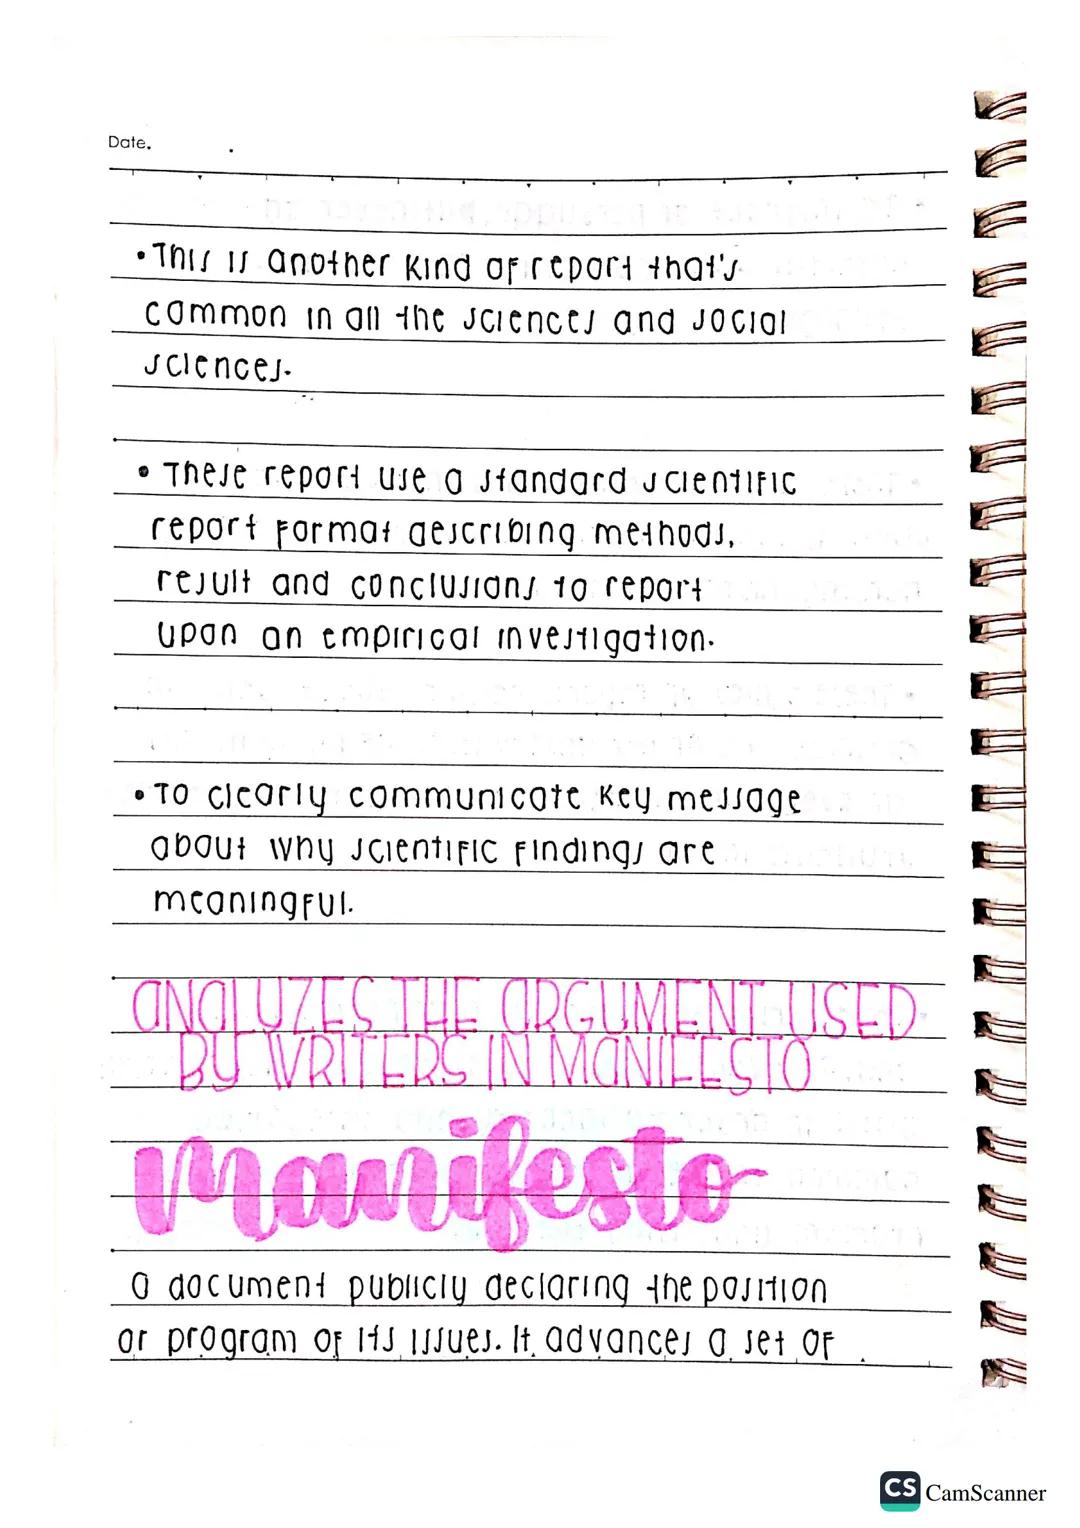 Date.
• This is another kind of report that's
common in all the sciences and social
sciences.
• These report use a standard scientific
report format describing methods,
result and conclusions to report
upon an empirical investigation.
• To clearly communicate key message
about why scientific findings are
meaningful.
ANALYZES THE ARGUMENT USED
BY WRITERS IN MANIFESTO
manifesto
a document publicly declaring the position
or program of its issues. It advances a set of
CS CamScanner